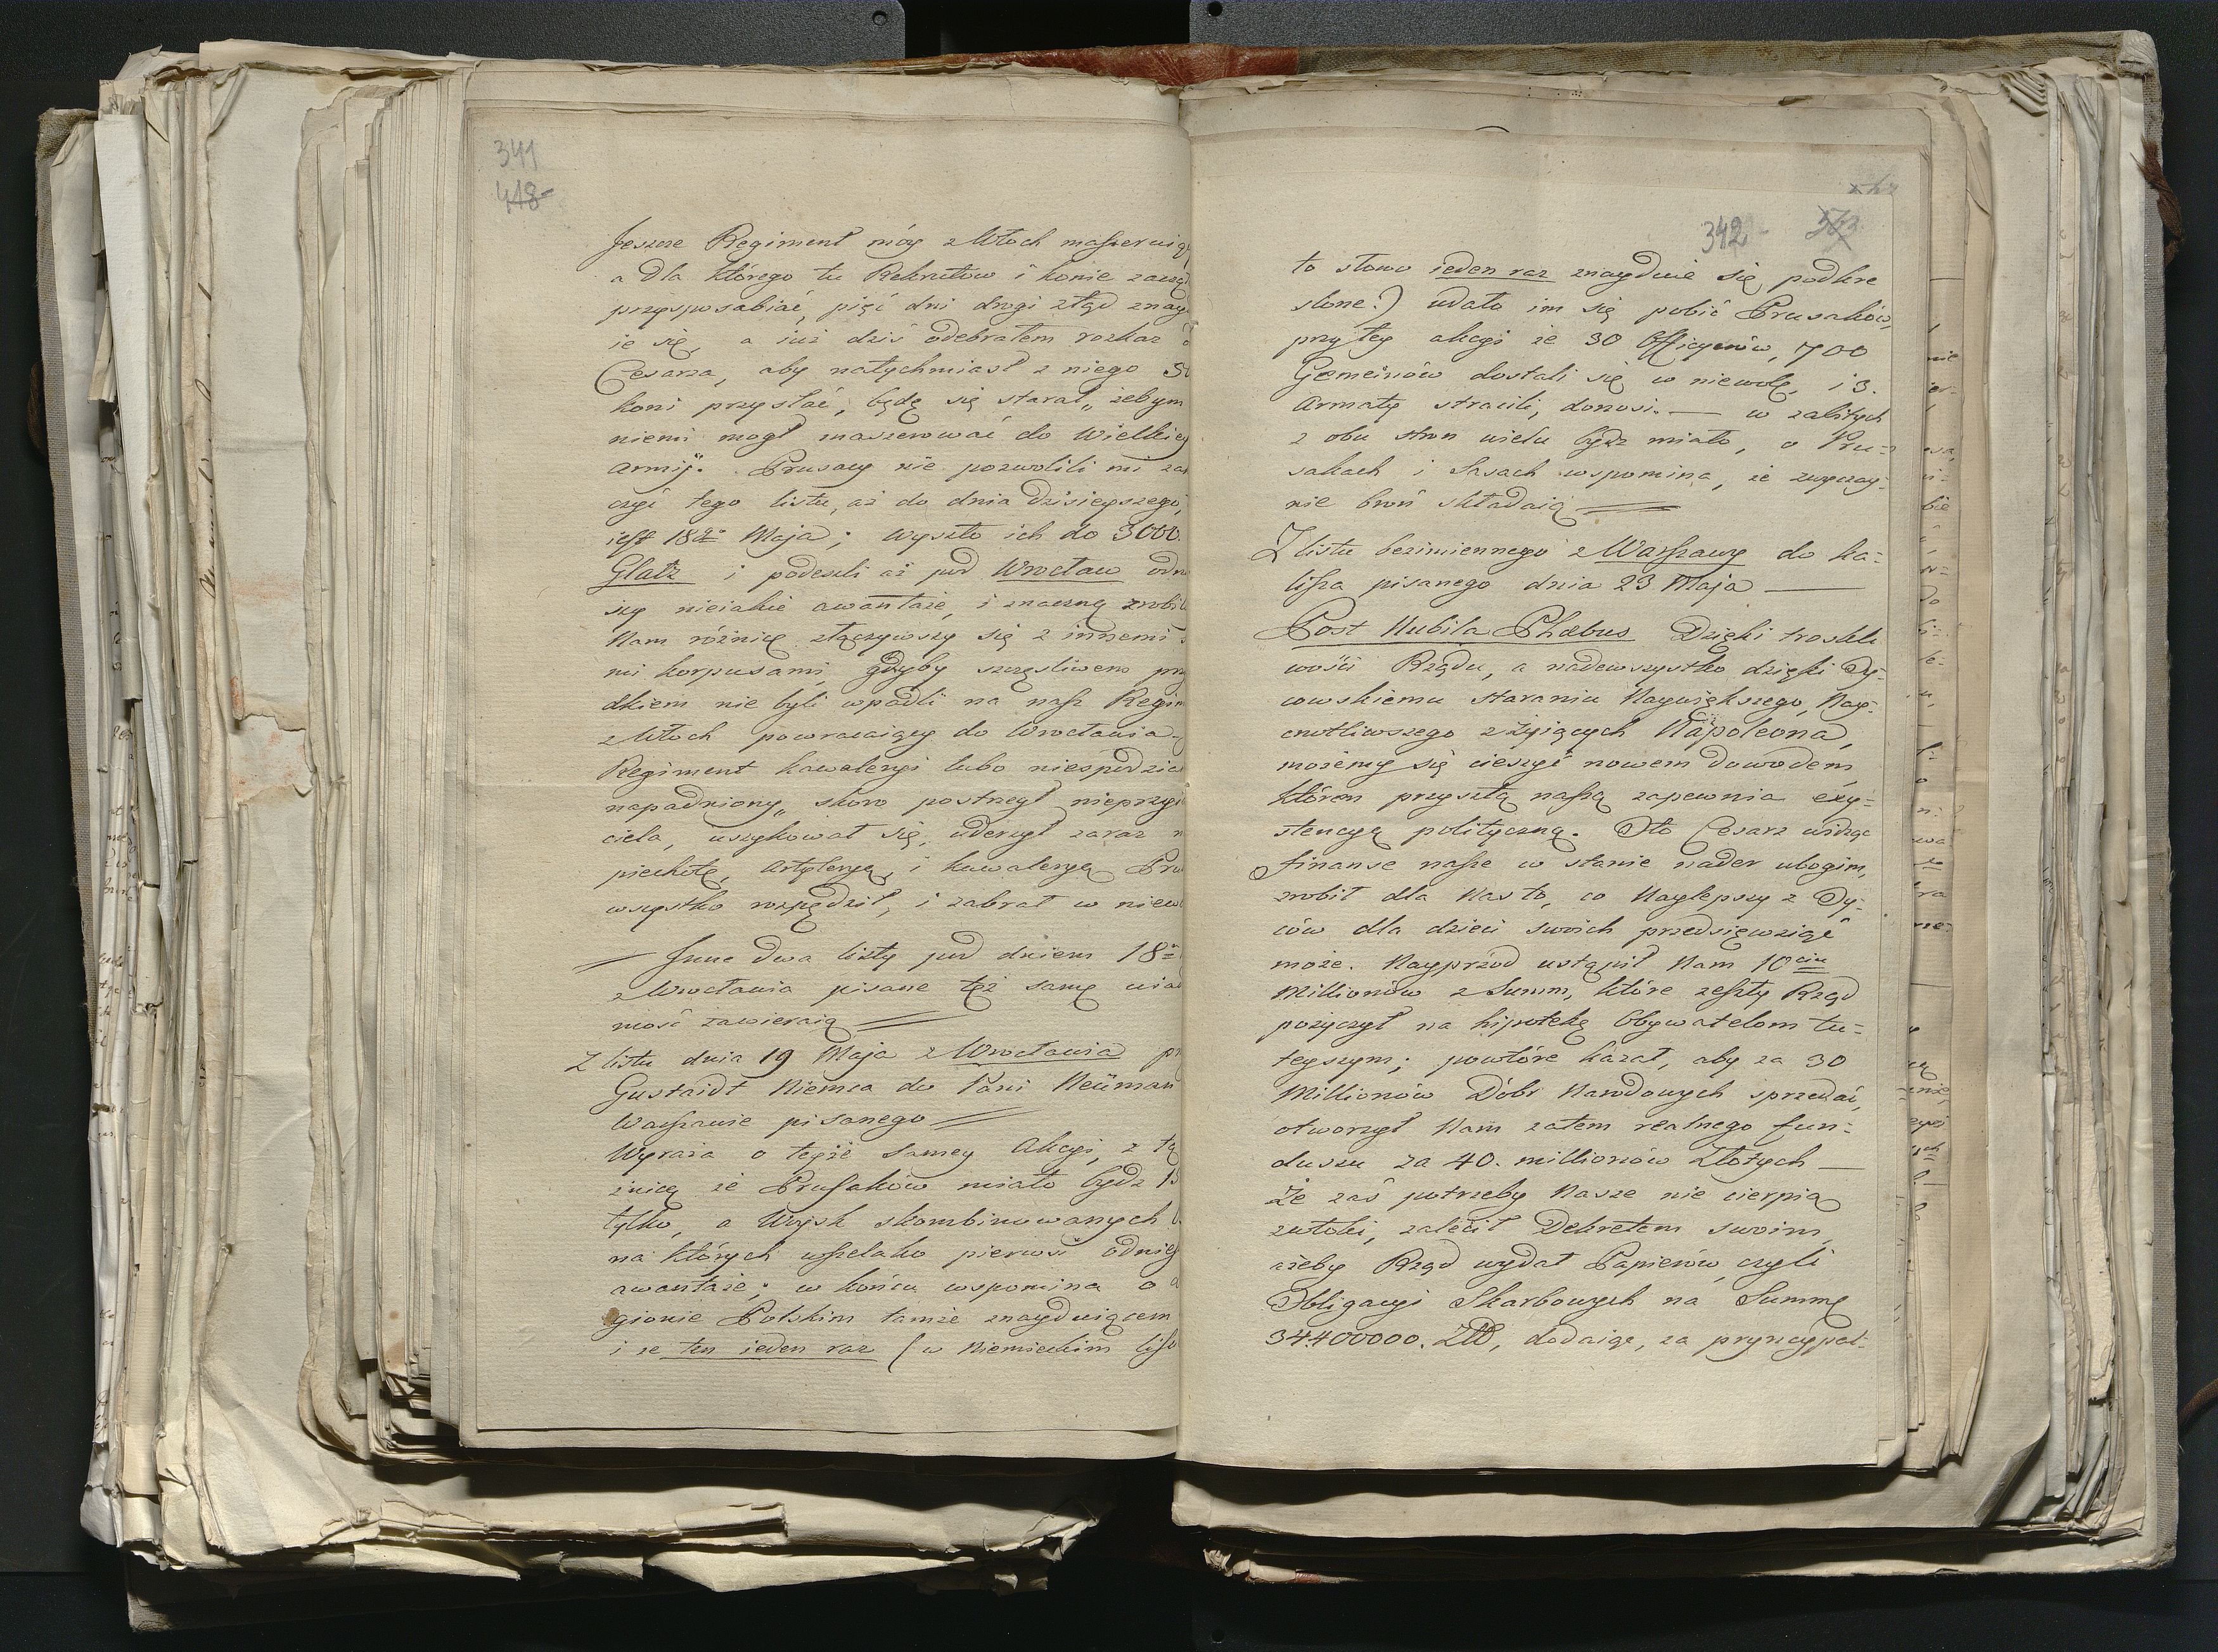 341
418
Jeszcze Regiment móy z Włoch maszeruią
a dla którego tu Rekrutów i konie zaczą
przysposabiać, pięć dni drogi ztąd znay
ie się, a iuż dziś odebrałem rozkaz
Cesarza, aby natychmiast z niego
koni przysłać, będę się starał, żebym
niemi mogł maszerować do Wielkiey
Armij. Prusacy nie pozwolili mi za
czyć tego listu, aż do dnia dzisieyszego,
iest 18go Maja; wyszło ich do 3000.
Glatz i podeszli aż pod Wrocław odn
szy nieiakie awantaże, i znaczną zrobil
Nam różnicę złączywszy się z innemi
mi korpusami, gdyby szczęśliwem prz
dkiem nie byli wpadli na nasz Regim
z Włoch powracaiący do Wrocławia
Regiment kawaleryi lubo niespodzia
napadniony, skoro postrzegł nieprzyi
ciela, uszykował się, uderzył zaraz n
piechotę, Artyleryą, i kawaleryą Pru
wszystko rozpędził, i zabrał w niew
Inne dwa listy pod dniem 18
z Wrocławia pisane też samę wiad
mość zawieraią
Z listu dnia 19 Maja z Wrocławia p
Gustaidt Niemca do Pani Neüman
Warszawie pisanego
Wyraża o teyże samey Akcyi, z tą
żnicą że Prusaków miało bydz 15
tylko, a Woysk skombinowanych
na których wszelako pierwsi odnieś
awantaże; w końcu wspomina o
gionie Polskim tamże znayduiącem
i że ten ieden raz (w Niemieckim liśc
342 343
to słowo ieden raz znayduie się podkre
slone.) udało im się pobić Prusaków,
przy tey akcyi że 30 Officyerów, 700
Gemeinów dostali się w niewolę, i 3.
Armaty stracili, donosi. — w zabitych
z obu stron wielu bydz miało, o Pru-
sakach i Sasach wspomina, że zwyczay-
nie broń składaią
Z listu bezimiennego z Warszawy do Ka-
lisza pisanego dnia 23 Maja —
Post Nubila Phœbus Dzięki troskli
wości Rządu, a nadewszystko dzięki Oy-
cowskiemu staraniu Naywiększego, Nay-
cnotliwszego z żyiących Napoleona,
możemy się cieszyć nowem dowodem,
którem przyszłą naszą zapewnia exy-
stencyą polityczną. Oto Cesarz widząc
finanse nasze w stanie nader ubogim,
zrobił dla Nas to, co Naylepszy z Oy-
ców dla dzieci swoich przedsięwziąć
może. Nayprzód ustąpił Nam 10ciu
Millionów z Summ, które zeszły Rząd
pożyczył na hipotekę Obywatelom tu-
teyszym; powtóre kazał, aby za 30
Millionów Dóbr Narodowych sprzedać,
otworzył Nam zatem realnego fun-
duszu za 40. millionów Złotych —
Że zaś potrzeby Nasze nie cierpią
zwłoki, zalecił Dekretem swoim,
ażeby Rząd wydał Papierów, czyli
Obligacyi Skarbowych na Summę
34.400000. Złł, dodaiąc, za pryncypal-